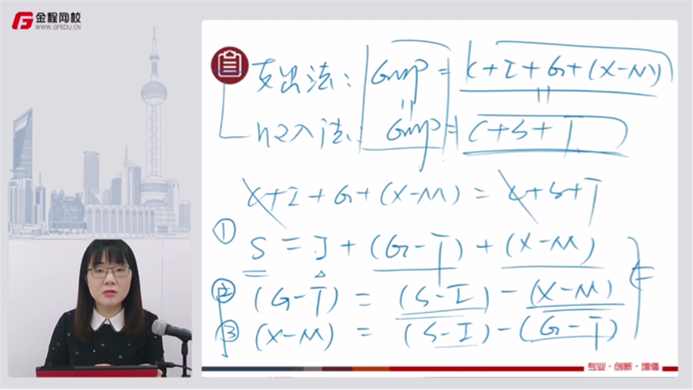 金程网校
WWW.GFEDU.CN
支出法: Gmp = C+I+G+(X-M)
收入法: Gmp = C+S+T
C+I+G+(X-M) = C+S+T
① S = I + (G-T) + (X-M)
② (G-T) = (S-I) - (X-M)
③ (X-M) = (S-I) - (G-T)
专业·创新·增值